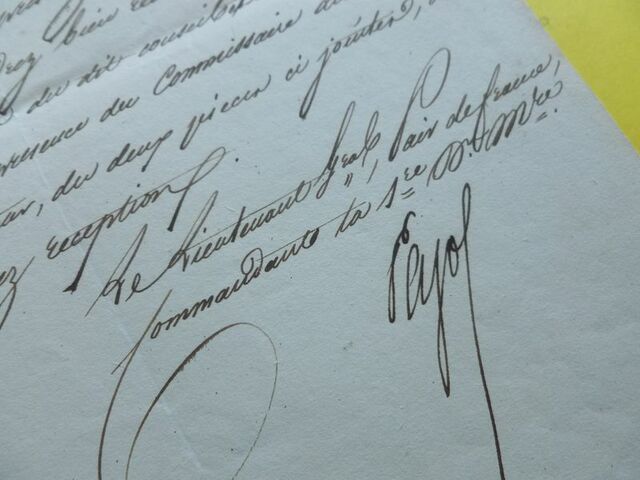 bien
du dit conseil
présence du Commissaire du
, des deux pièces ci jointes,
réception.
Le Lieutenant Gral, Pair de france,
Commandant la 1re Don Mre.
Pajol